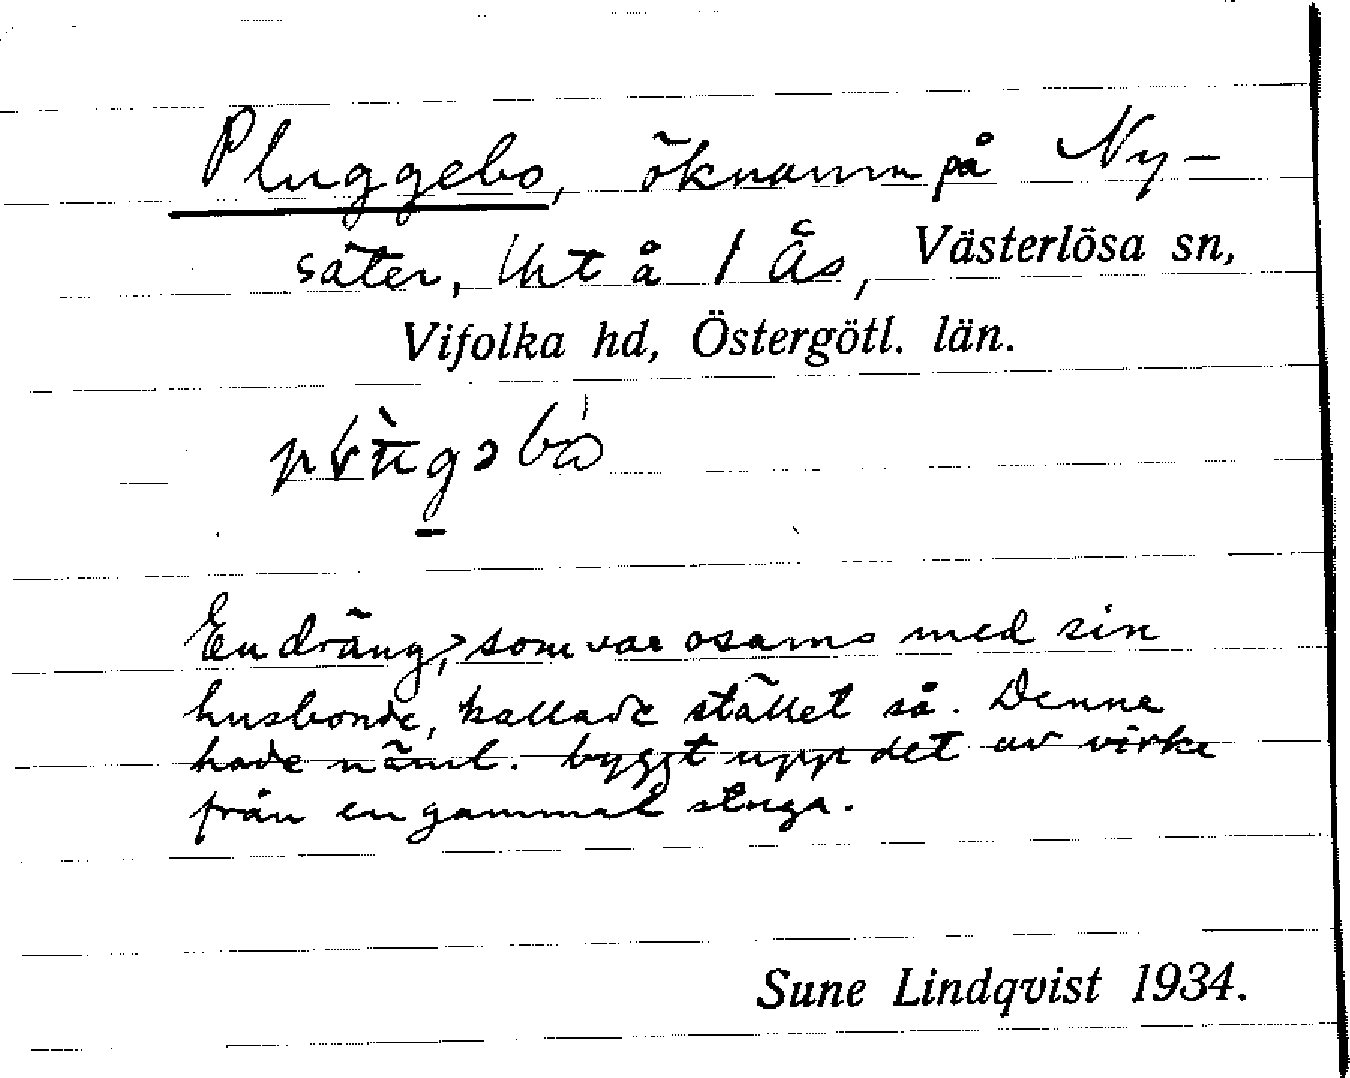 Pluggebo, öknamn på Ny-
säter, lht å 1 Ås, Västerlösa sn,
Vifolka hd, Östergötl. län.
En dräng, som var osams med sin
husbonde, kallade stället så. Denne
hade näml. byggt upp det av virke
från en gammal stuga.
Sune Lindqvist 1934.